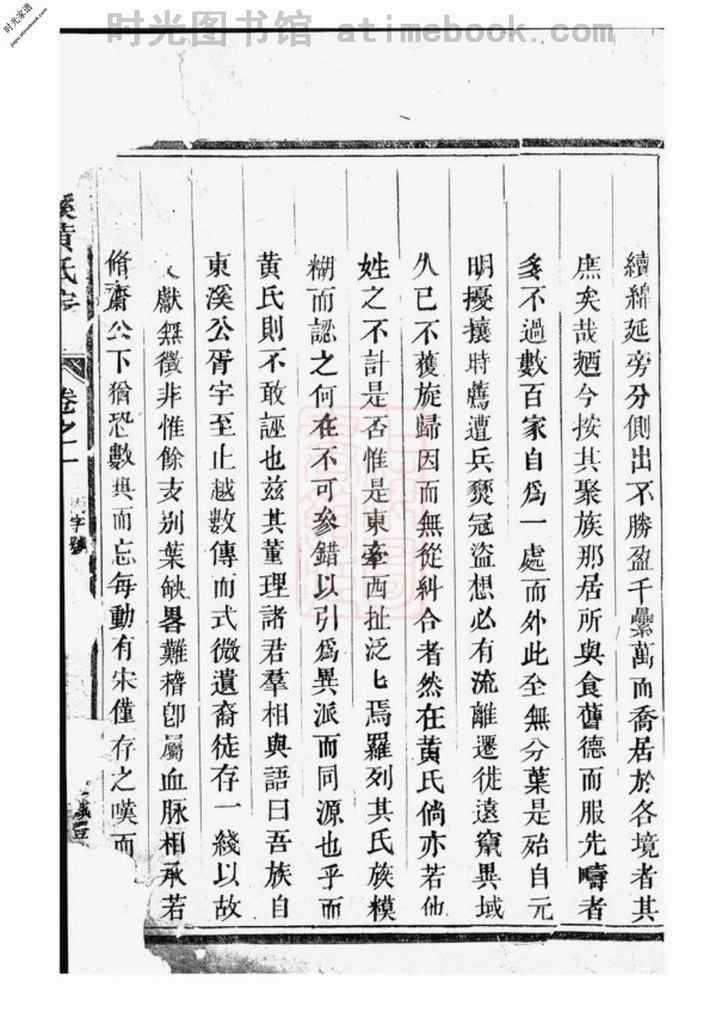 时光图书馆 atimebook.com
时光家谱
jiapu.atimebook.com
續綿延旁分側出不勝盈千纍萬而喬居於各境者其
庶矣哉廼今按其聚族那居所與食舊德而服先疇者
多不過數百家自爲一處而外此全無分葉是殆自元
明擾攘時薦遭兵燹冠盜想必有流離遷徙遠竄異域
久已不獲旋歸因而無從糾合者然在黄氏倘亦若他
姓之不計是否惟是東牽西扯泛七焉羅列其氏族模
糊而認之何在不可參錯以引爲異派而同源也乎而
黄氏則不敢誣也兹其董理諸君羣相與語曰吾族自
東溪公胥宇至止越數傳而式微遺裔徒存一綫以故
獻無徵非惟餘支别葉缺畧難稽卽屬血脉相承若
脩齋公下猶恐數典而忘每動有宋僅存之嘆而
溪黄氏宗
卷之一
字號